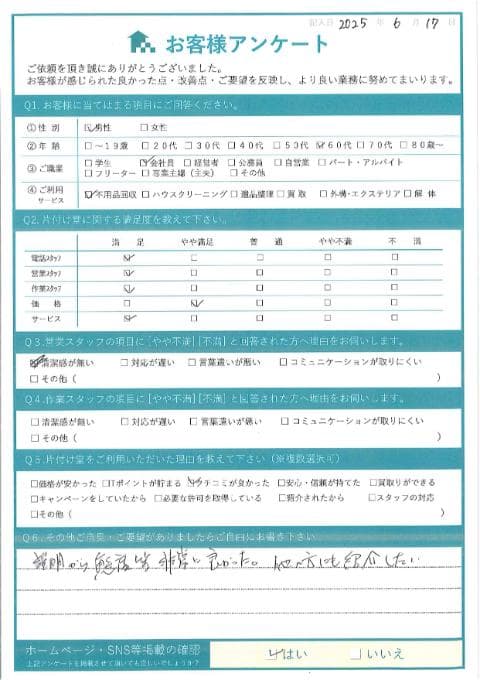 記入日 2025 年 6 月 17 日
お客様アンケート
ご依頼を頂き誠にありがとうございました。
お客様が感じられた良かった点・改善点・ご要望を反映し、より良い業務に努めてまいります。
Q1. お客様に当てはまる項目にご回答ください。
①性別 ☑男性 □女性
②年齢 □～19歳 □20代 □30代 □40代 □50代 ☑60代 □70代 □80歳～
③ご職業 □学生 ☑会社員 □経営者 □公務員 □自営業 □パート・アルバイト
□フリーター □言業主婦（主夫） □その他
④ご利用サービス ☑不用品回収 □ハウスクリーニング □遺品整理 □買取 □外構・エクステリア □解体
Q2. 片付け堂に関する満足度を教えて下さい。
満足 やや満足 普通 やや不満 不満
電話スタッフ ☑ □ □ □ □
営業スタッフ ☑ □ □ □ □
作業スタッフ ☑ □ □ □ □
価格 □ ☑ □ □ □
サービス ☑ □ □ □ □
Q3. 営業スタッフの項目に［やや不満］［不満］と回答された方へ理由をお伺いします。
☑清潔感が無い □対応が遅い □言葉遣いが悪い □コミュニケーションが取りにくい
□その他（ ）
Q4. 作業スタッフの項目に［やや不満］［不満］と回答された方へ理由をお伺いします。
□清潔感が無い □対応が遅い □言葉遣いが悪い □コミュニケーションが取りにくい
□その他（ ）
Q5. 片付け堂をご利用いただいた理由を教えて下さい（※複数選択可）
□価格が安かった □Tポイントが貯まる ☑クチコミが良かった □安心・信頼が持てた □買取りができる
□キャンペーンをしていたから □必要な許可を取得している □紹介されたから □スタッフの対応
□その他（ ）
Q6. その他ご意見・ご要望がありましたらご自由にお書き下さい
説明から態度皆非常に良かった。他の方にも紹介したい
ホームページ・SNS等掲載の確認 ☑はい □いいえ
上記アンケートを掲載させて頂いても宜しいでしょうか？